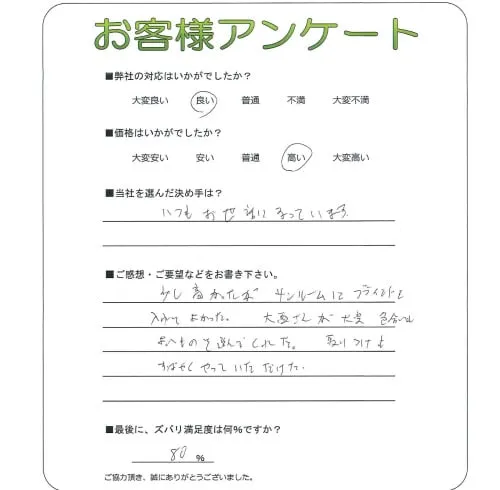 お客様アンケート
■弊社の対応はいかがでしたか？
大変良い 良い 普通 不満 大変不満
■価格はいかがでしたか？
大変安い 安い 普通 高い 大変高い
■当社を選んだ決め手は？
いつもお世話になっています。
■ご感想・ご要望などをお書き下さい。
少し高かったが サンルームにブラインドを
入れてよかった。 大西さんが大変 色合いも
よいものを選んでくれた。 取りつけも
すばやくやっていただけた。
■最後に、ズバリ満足度は何%ですか？
80 %
ご協力頂き、誠にありがとうございました。